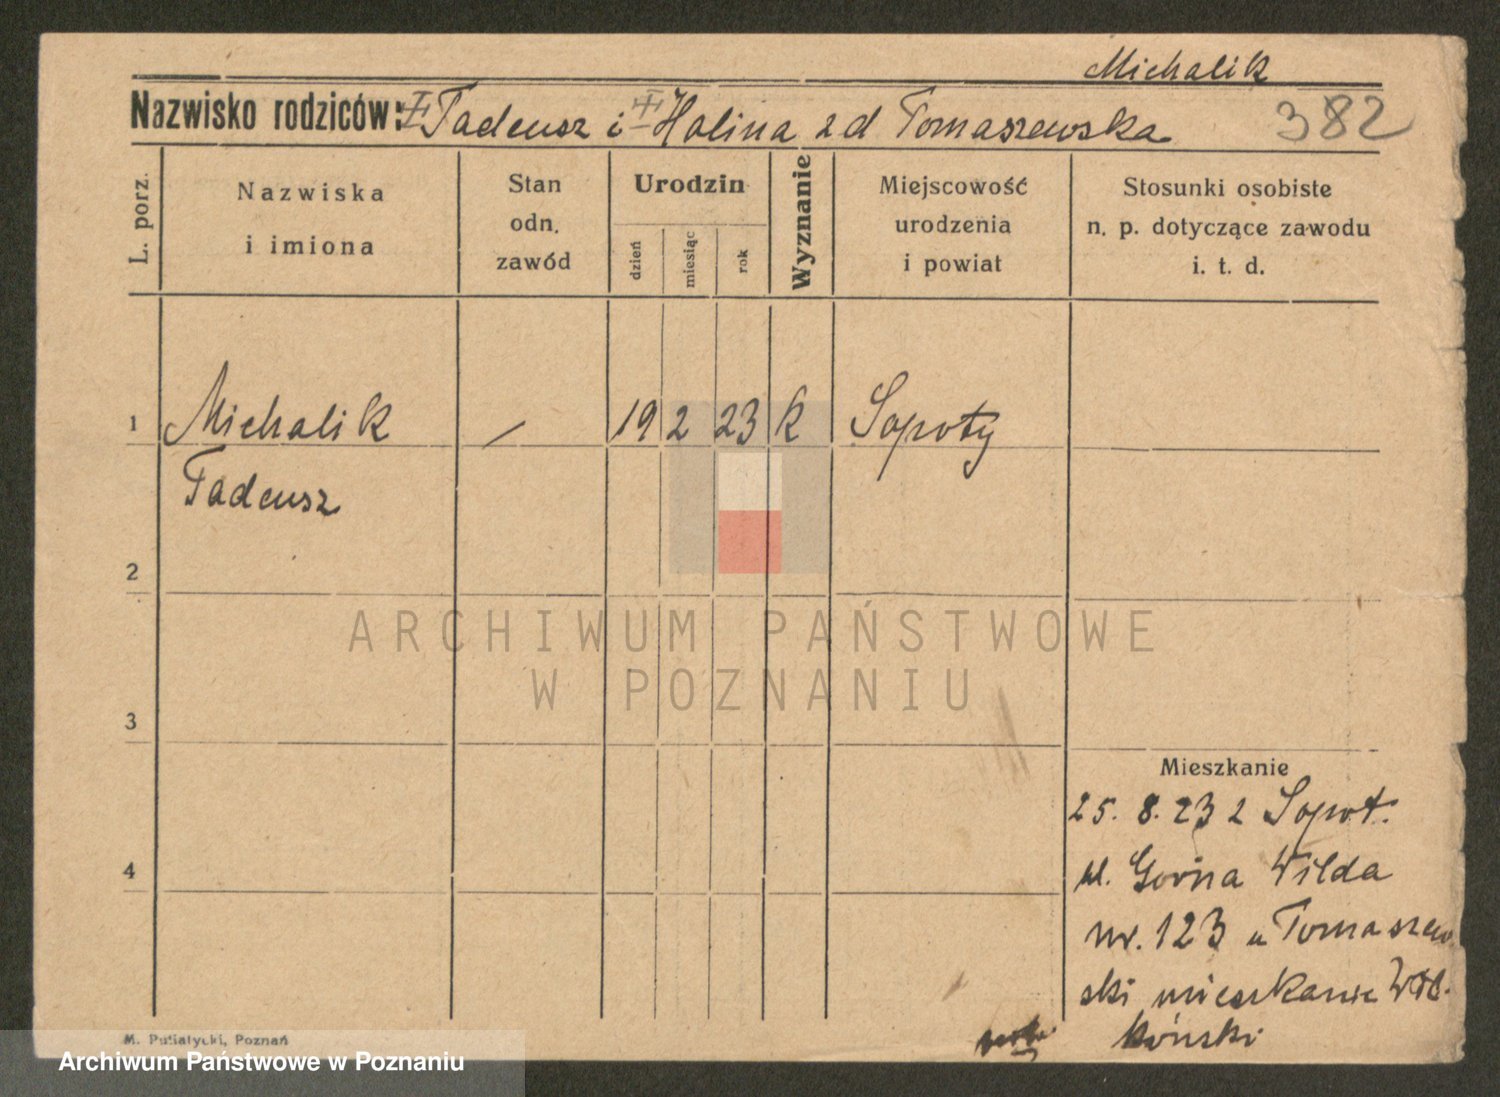 Michalik
Nazwisko rodziców: Tadeusz i Halina zd Tomaszewska 382
L. porz.
Nazwiska
i imiona
Stan
odn.
zawód
Urodzin
dzień
miesiąc
rok
Wyznanie
Miejscowość
urodzenia
i powiat
Stosunki osobiste
n. p. dotyczące zawodu
i. t. d.
1 Michalik – 19 2 23 k Sopoty
Tadeusz
2
3
4
ARCHIWUM PAŃSTWOWE
W POZNANIU
Mieszkanie
25. 8. 23 z Sopot.
ul. Gorna Wilda
nr. 123 u Tomaszew
ski mieszkanie
M. Putiatycki, Poznań
Archiwum Państwowe w Poznaniu